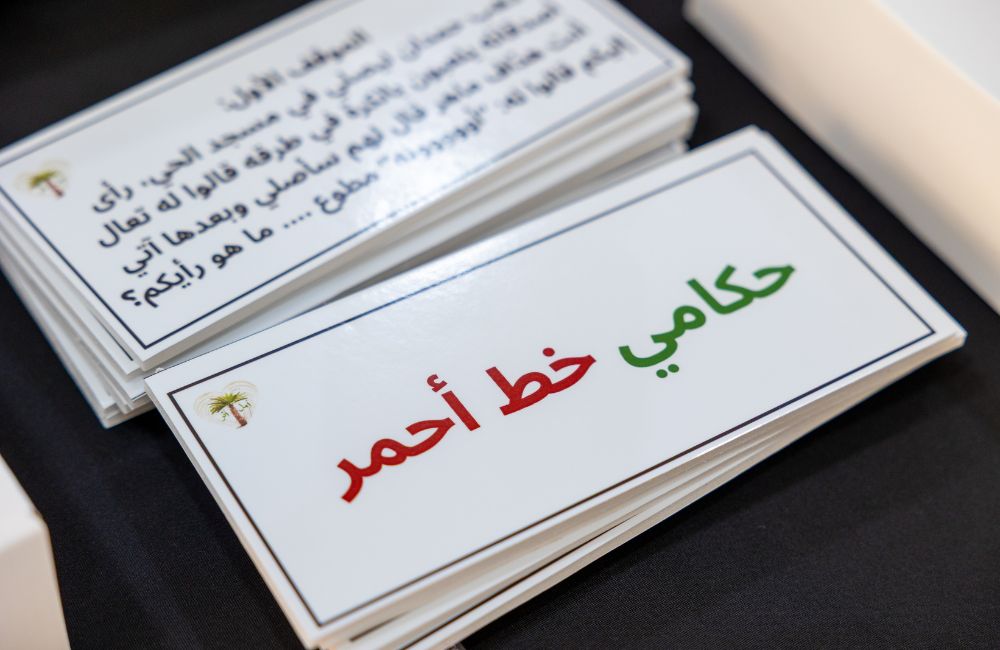 الموقف الأول:
ذهب حمدان ليصلي في مسجد الحي. رأى
أصدقائه يلعبون بالكرة في طرقه قالوا له تعال
أنت هداف ماهر قال لهم سأصلي وبعدها آتي
إليكم قالوا له: "أووووونه" مطوع .... ما هو رأيكم؟
حكامي خط أحمر